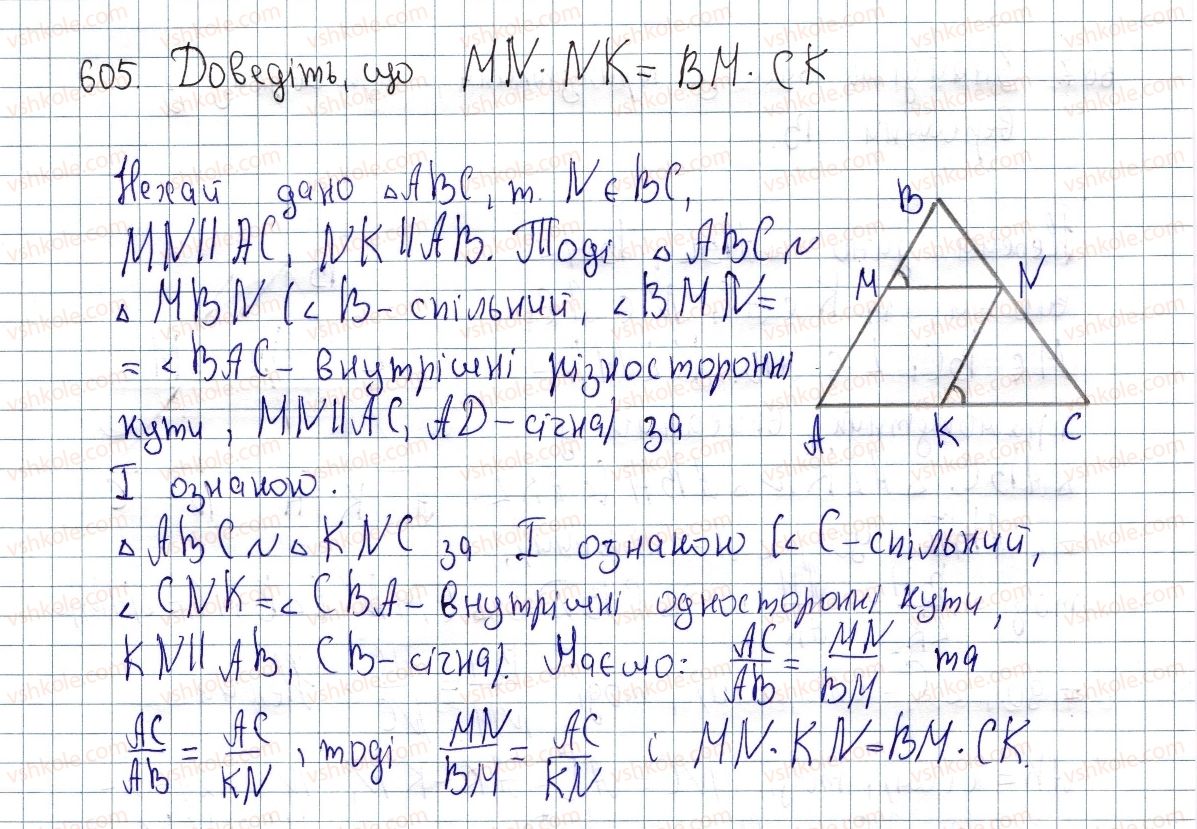 605. Доведіть, що MN · NK = BM · CK
Нехай дано △ABC, т. N ∈ BC,
MN || AC, NK || AB. Тоді △ABC ~
△MBN (∠B - спільний, ∠BMN =
= ∠BAC - внутрішні різносторонні
кути, MN || AC, AD - січна) за
I ознакою.
△ABC ~ △KNC за I ознакою (∠C - спільний,
∠CNK = ∠CBA - внутрішні односторонні кути,
KN || AB, CB - січна). Маємо: AC/AB = MN/BM та
AC/AB = AC/KN, тоді MN/BM = AC/KN і MN · KN = BM · CK.
B
M N
A K C
vshkole.com